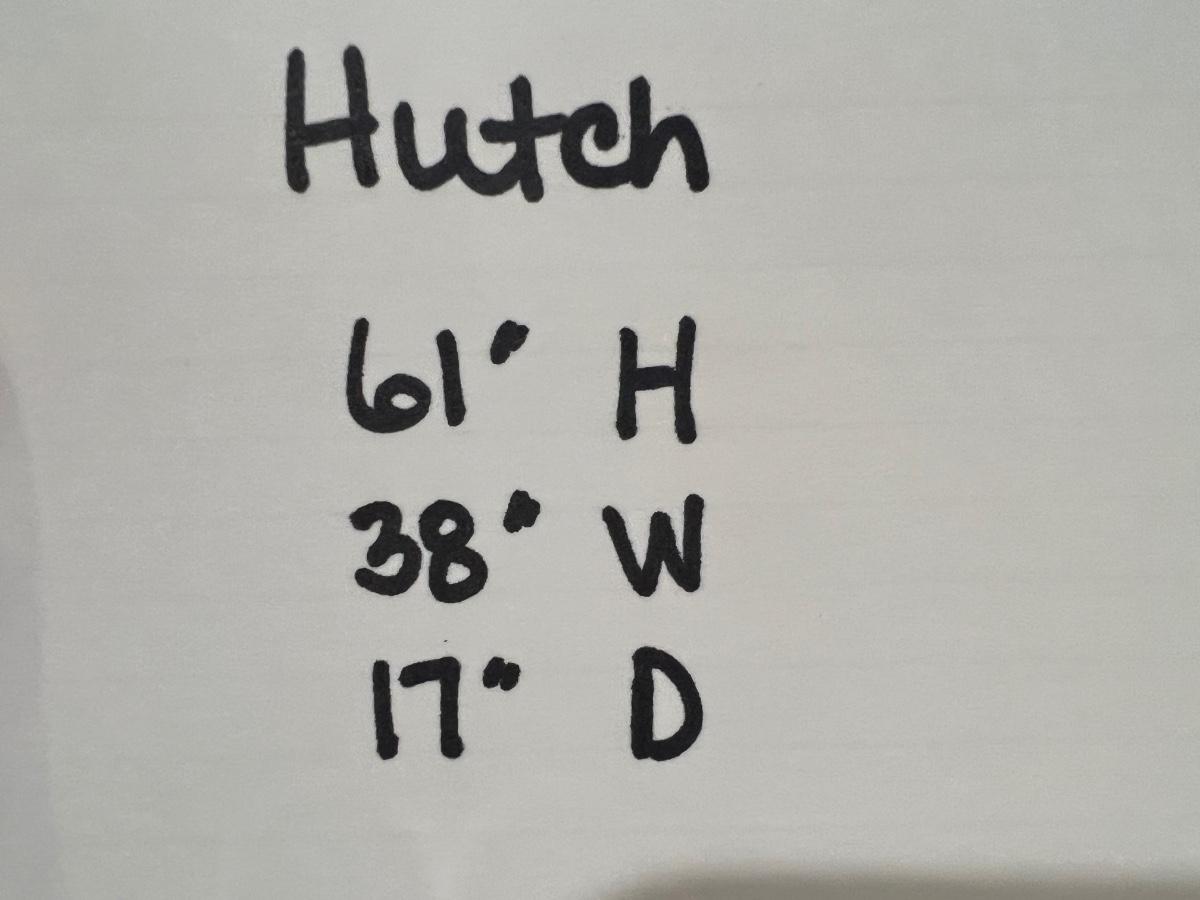 Hutch
61" H
38" W
17" D